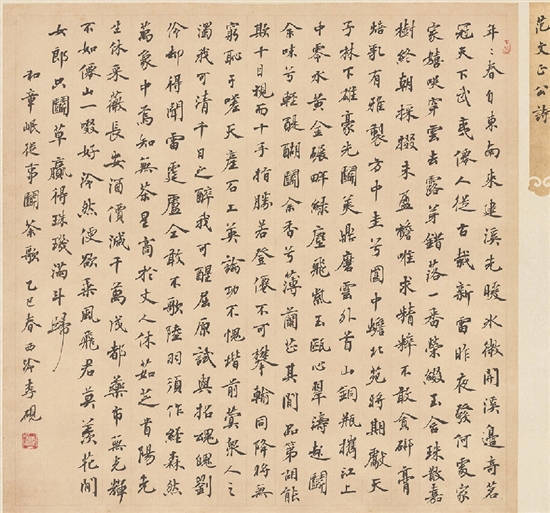 范文正公詩
年〻春自東南來建溪先暖冰微開溪邊奇茗
冠天下武夷僊人從古栽新雷昨夜發何處家
家嬉笑穿雲去露芽錯落一番榮綴玉含珠散嘉
樹終朝採掇未盈襜唯求精粹不敢貪研膏
焙乳有雅製方中圭兮圓中蟾北苑將期獻天
子林下雄豪先鬭美鼎磨雲外首山銅瓶攜江上
中零水黄金碾畔綠塵飛紫玉甌心翠濤起鬭
余味兮輕醍醐鬭余香兮薄蘭芷其間品第胡能
欺十目視而十手指勝若登僊不可攀輸同降將無
窮恥于嗟天產石上英論功不愧堦前蓂衆人之
濁我可清千日之醉我可醒屈原試與招魂魄劉
伶却得聞雷霆盧仝敢不歌陸羽須作經森然
萬象中焉知無茶星商於丈人休茹芝首陽先
生休采薇長安酒價減千萬成都藥市無光輝
不如僊山一啜好泠然便欲乘風飛君莫羨花間
女郎只鬭草贏得珠璣滿斗歸
和章岷從事鬭茶歌 乙巳春西泠李硯